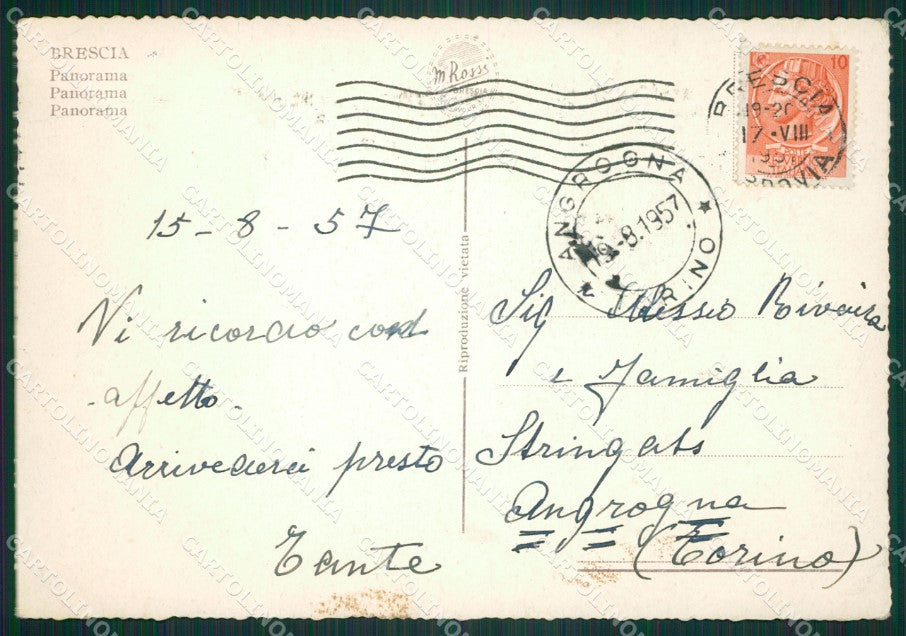 BRESCIA
Panorama
Panorama
Panorama
m Rossi
BRESCIA
10
BRESCIA
19-20
17·VIII
195
ANGROGNA
19-8.1957
TORINO
Riproduzione vietata
15-8-57
Vi ricordo con
affetto.
Arrivederci presto
Tante
Sig Alessio Rivoira
e Famiglia
Stringats
Angrogna
(Torino)
CARTOLINOMANIA